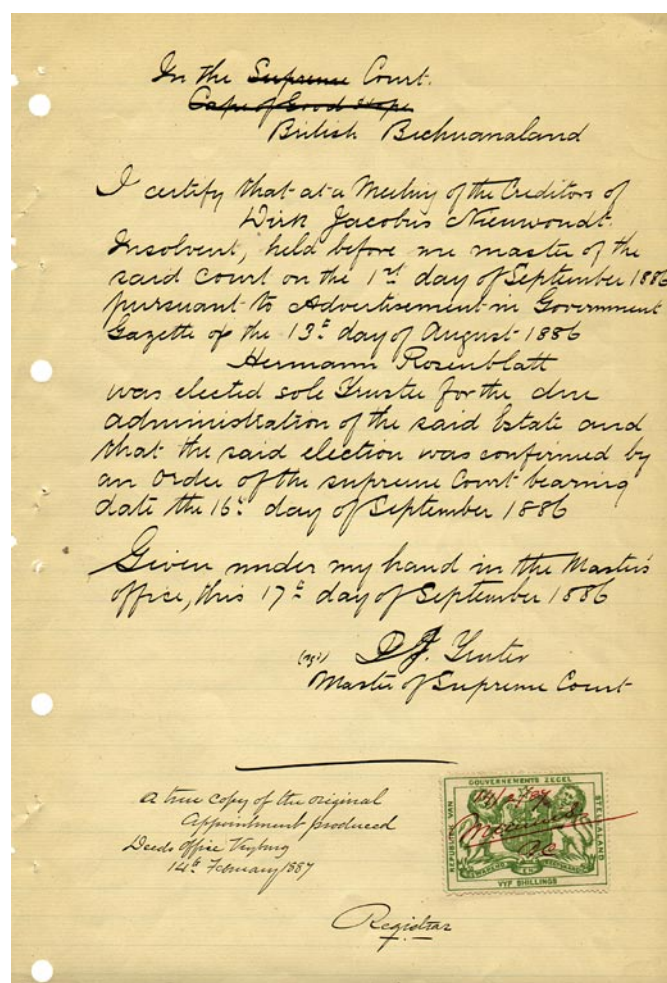 In the Supreme Court.
Cape of Good Hope
British Bechuanaland
I certify that at a Meeting of the Creditors of
Dirk Jacobus Nieuwoudt.
Insolvent, held before me master of the
said Court on the 1st day of September 1886
pursuant to Advertisement in Government
Gazette of the 13th day of August 1886
Hermann Rosenblatt
was elected sole Trustee for the due
administration of the said Estate and
that the said election was confirmed by
an Order of the supreme Court bearing
date the 16th day of September 1886
Given under my hand in the Master's
office, this 17th day of September 1886
D J.
Master of Supreme Court
a true copy of the original
Appointment produced
Deeds Office Vryburg
14th February 1887
GOUVERNEMENTS ZEGEL
REPUBLIEK VAN
STELLALAND
GEWAPEND EN
VYF SHILLINGS
14/2/87
Registrar